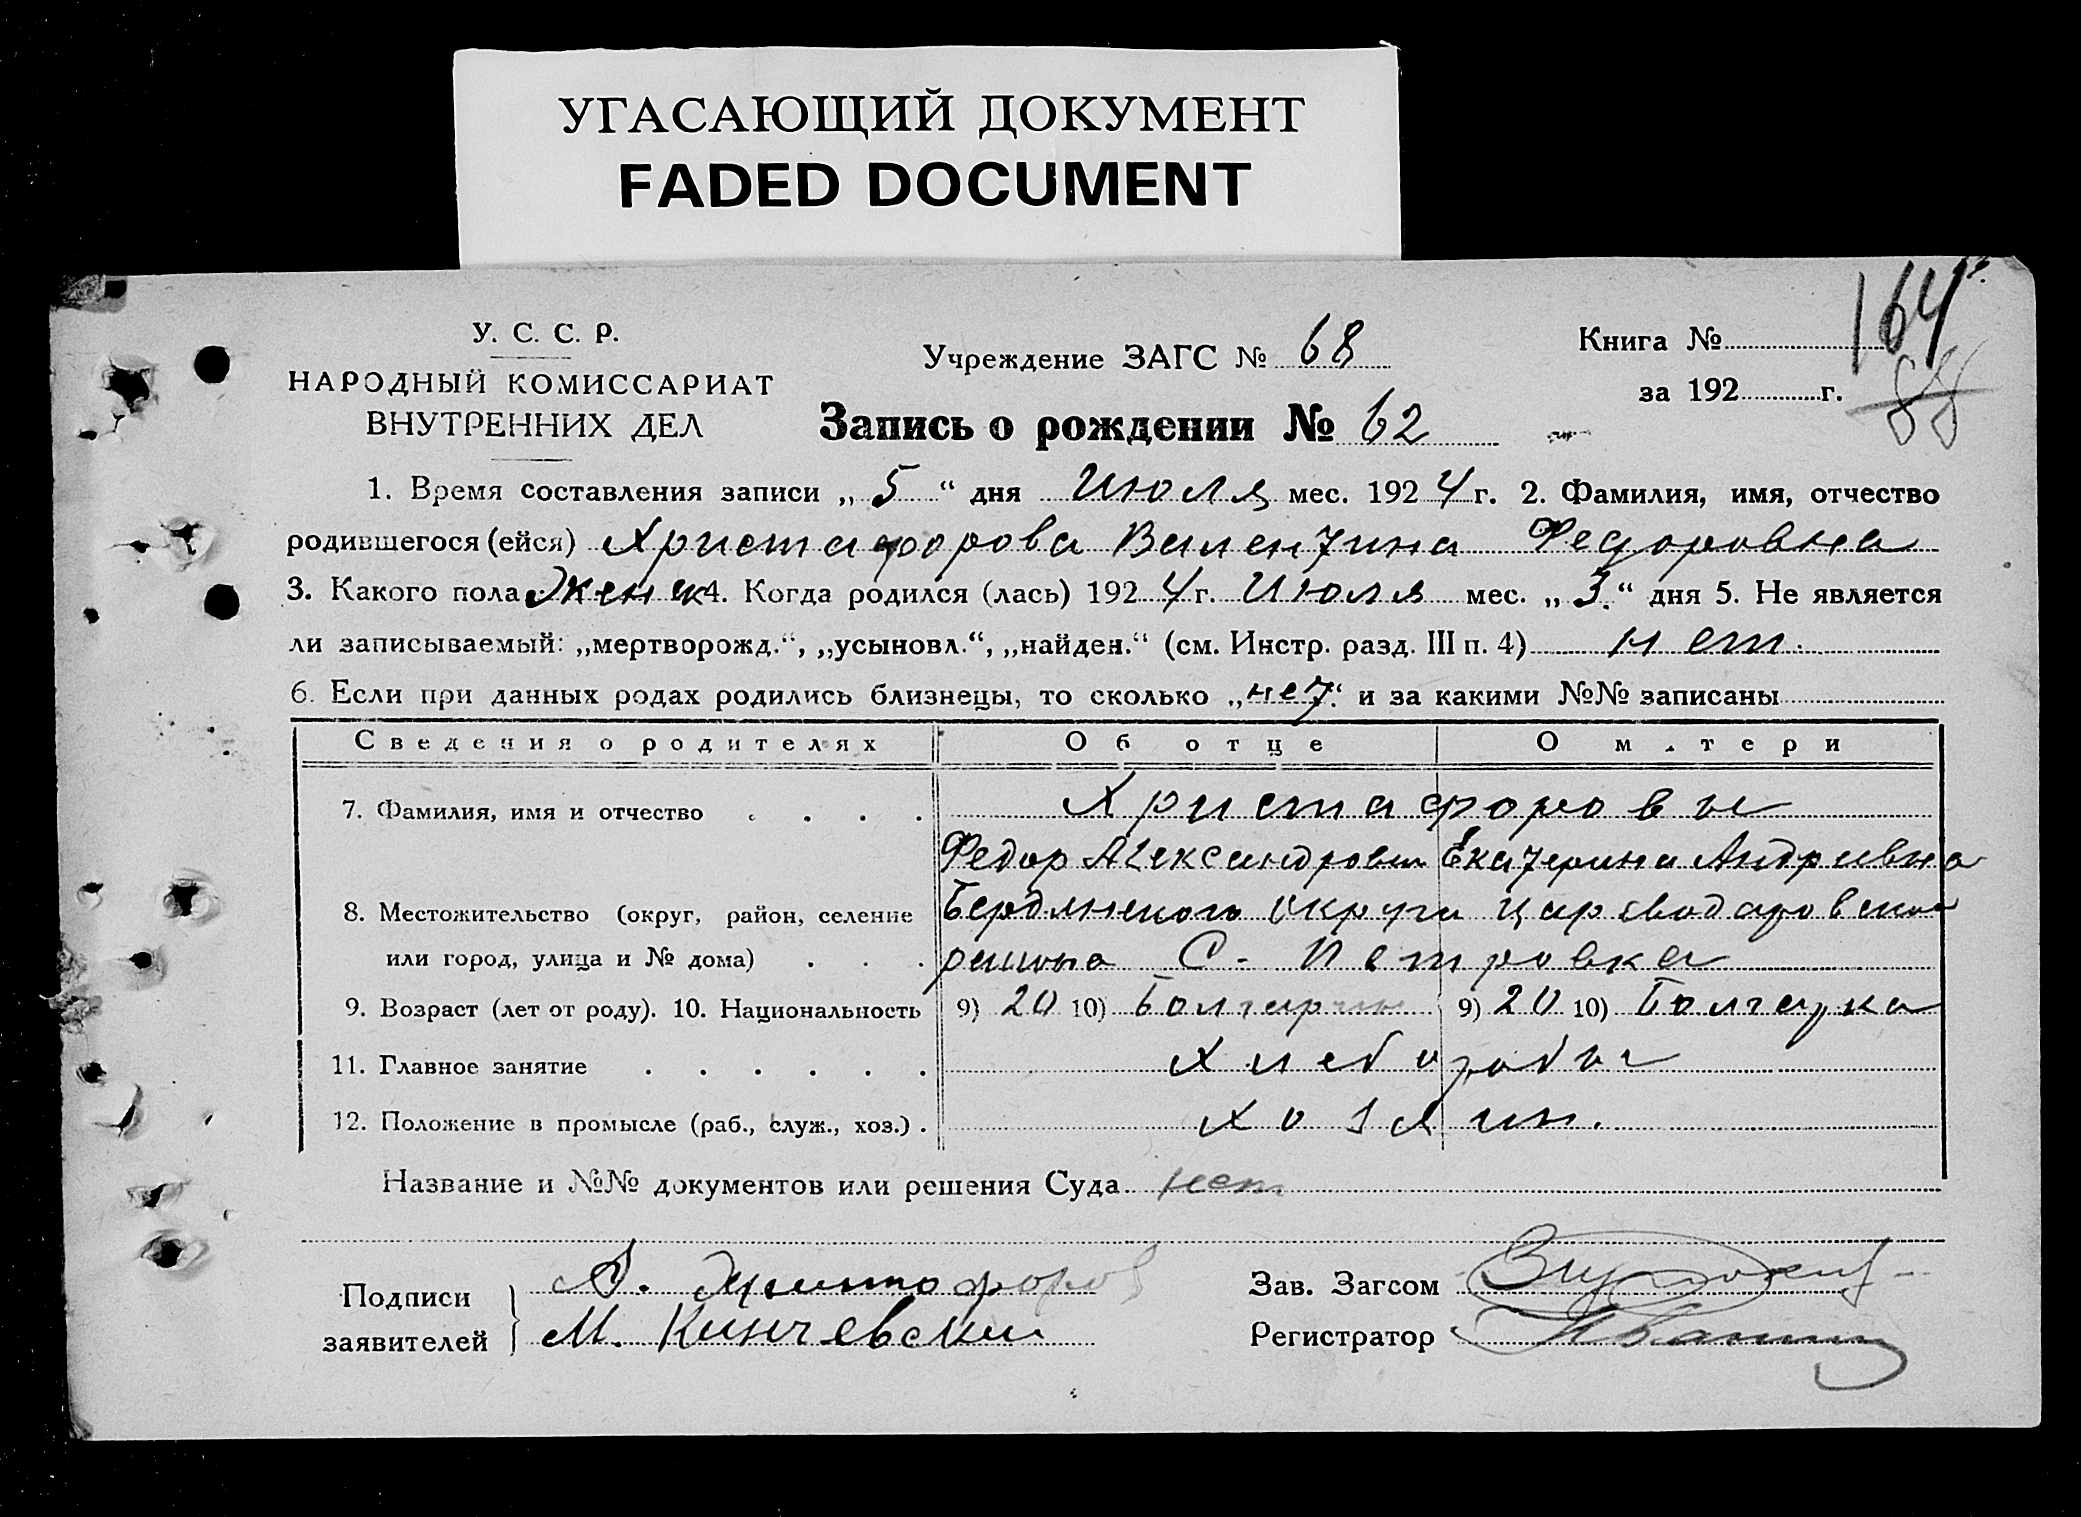 УГАСАЮЩИЙ ДОКУМЕНТ
FADED DOCUMENT
У. С. С. Р.
НАРОДНЫЙ КОМИССАРИАТ
ВНУТРЕННИХ ДЕЛ
Учреждение ЗАГС № 68
Книга №
164
за 192 г.
88
Запись о рождении № 62
1. Время составления записи „ 5 “ дня Июля мес. 192 4 г. 2. Фамилия, имя, отчество
родившегося (ейся) Христафорова Валентина Федоровна
3. Какого пола женск 4. Когда родился (лась) 192 4 г. Июля мес. „ 3. “ дня 5. Не является
ли записываемый: „мертворожд.“, „усыновл.“, „найден.“ (см. Инстр. разд. III п. 4) нет.
6. Если при данных родах родились близнецы, то сколько „ нет “ и за какими №№ записаны
Сведения о родителях Об отце О матери
7. Фамилия, имя и отчество . . . . Христафоровы
Федор Александрович Екатерина Андривна
8. Местожительство (округ, район, селение Бердянского округа Цареводаровского
или город, улица и № дома) . . . района С. Петровка
9. Возраст (лет от роду). 10. Национальность 9) 20 10) Болгарин 9) 20 10) Болгарка
11. Главное занятие . . . . . . Хлеборобы
12. Положение в промысле (раб., служ., хоз.) . хозяин.
Название и №№ документов или решения Суда нет
Подписи заявителей
А. Христофоров
М. Кинчевский
Зав. Загсом
Регистратор